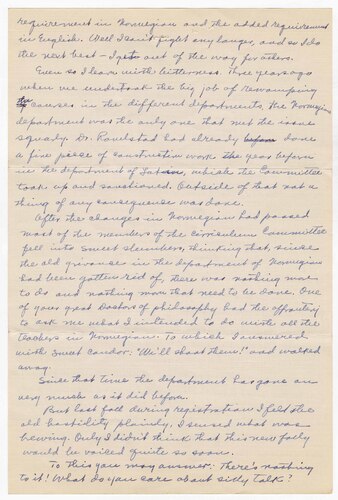 requirement in Norwegian and the added requirement
in English. Well I can't fight any longer, and so I do
the next best – I get out of the way for others.
Even so I leave with bitterness. Three years ago
when we undertook the big job of revamping
the courses in the different departments, the Norwegian
department was the only one that met the issue
squarely. Dr. had already before done
a fine piece of constructive work the year before
in the department of Latin, which the Committee
took up and sanctioned. Outside of that not a
thing of any consequence was done.
After the changes in Norwegian had passed
most of the members of the Curriculum Committee
fell into sweet slumbers, thinking that, since
the old grievance in the department of Norwegian
had been gotten rid of, there was nothing more
to do and nothing more that need to be done. One
of your great doctors of philosophy had the effrontery
to ask me what I intended to do with all the
teachers in Norwegian. To which I answered
with sweet candor: "We'll shoot them!" and walked
away.
Since that time the department has gone on
very much as it did before.
But last fall during registration I felt the
old hostility plainly, I sensed what was
brewing. Only I didn't think that this new folly
would be voiced quite so soon.
To this you may answer: There's nothing
to it! What do you care about silly talk?